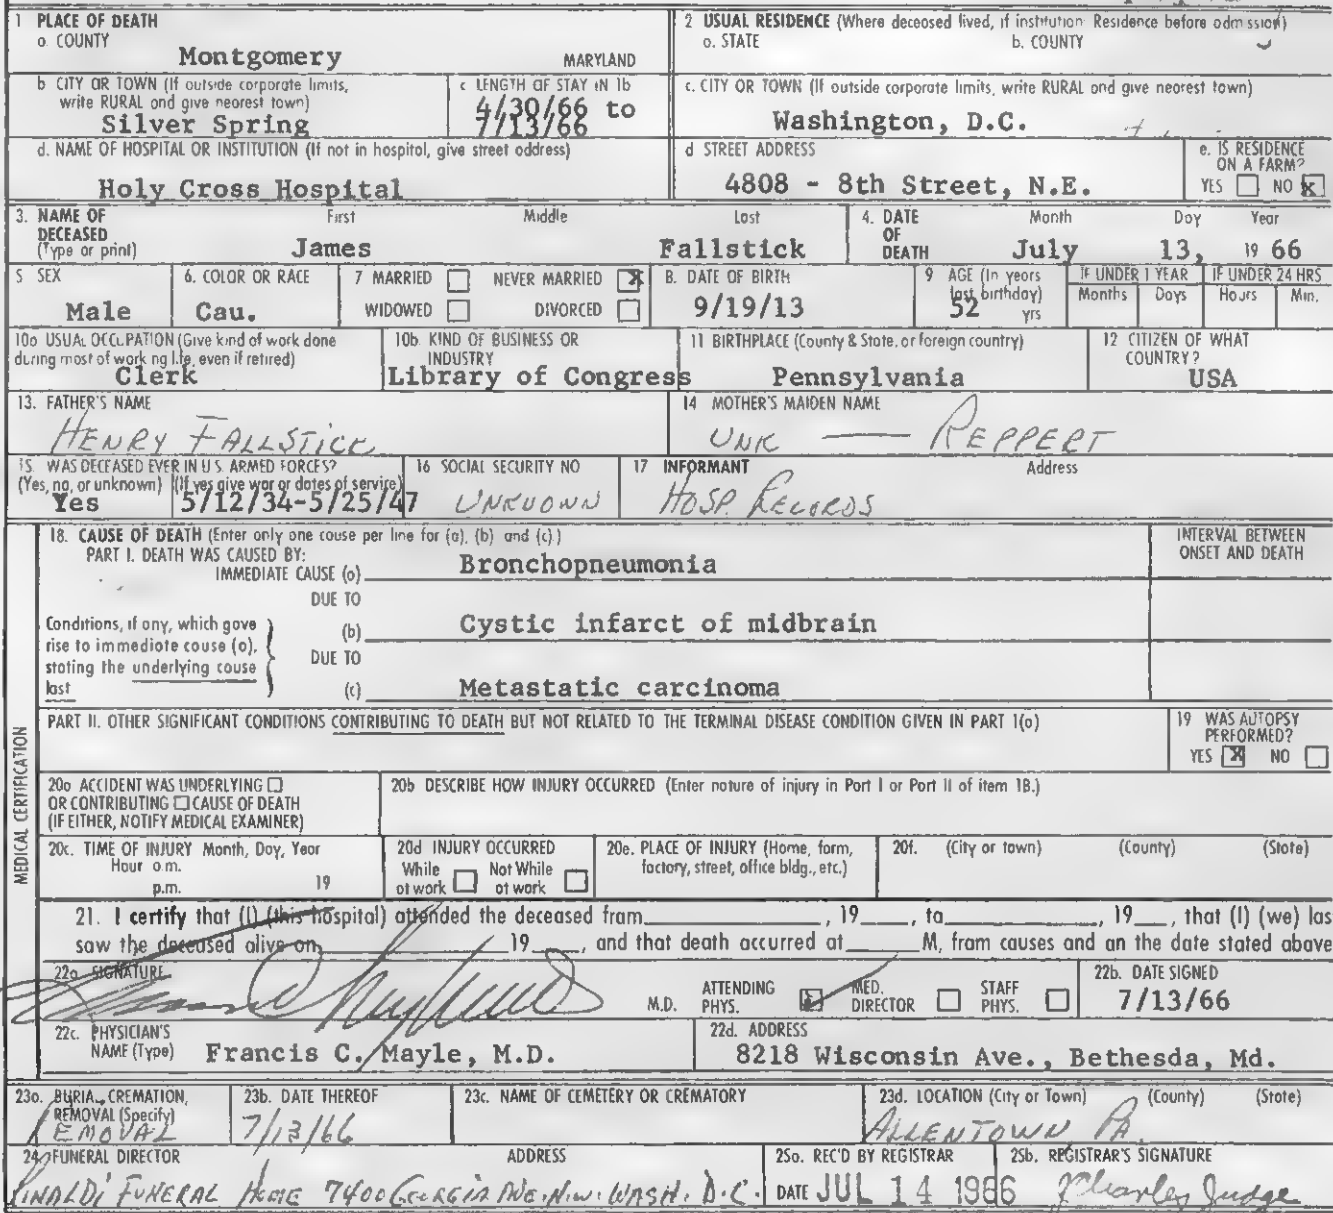 1 PLACE OF DEATH
a. COUNTY
Montgomery MARYLAND
2 USUAL RESIDENCE (Where deceased lived, if institution Residence before admission)
a. STATE b. COUNTY
b CITY OR TOWN (If outside corporate limits, write RURAL and give nearest town)
Silver Spring
c LENGTH OF STAY IN 1b
4/30/66 to
7/13/66
c. CITY OR TOWN (If outside corporate limits, write RURAL and give nearest town)
Washington, D.C.
d. NAME OF HOSPITAL OR INSTITUTION (If not in hospital, give street address)
Holy Cross Hospital
d STREET ADDRESS
4808 - 8th Street, N.E.
e. IS RESIDENCE ON A FARM?
YES NO X
3. NAME OF DECEASED (Type or print)
First Middle Last
James Fallstick
4. DATE OF DEATH
Month Day Year
July 13, 19 66
5 SEX
Male
6. COLOR OR RACE
Cau.
7 MARRIED NEVER MARRIED X
WIDOWED DIVORCED
8. DATE OF BIRTH
9/19/13
9 AGE (In years last birthday)
52 yrs
IF UNDER 1 YEAR
Months Days
IF UNDER 24 HRS
Hours Min.
10a USUAL OCCUPATION (Give kind of work done during most of working life, even if retired)
Clerk
10b. KIND OF BUSINESS OR INDUSTRY
Library of Congress
11 BIRTHPLACE (County & State, or foreign country)
Pennsylvania
12 CITIZEN OF WHAT COUNTRY?
USA
13. FATHER'S NAME
HENRY FALLSTICK
14 MOTHER'S MAIDEN NAME
UNK — REPPERT
15. WAS DECEASED EVER IN U.S. ARMED FORCES?
(Yes, no, or unknown) (If yes give war or dates of service)
Yes 5/12/34-5/25/47
16 SOCIAL SECURITY NO
UNKNOWN
17 INFORMANT Address
HOSP. RECORDS
MEDICAL CERTIFICATION
18. CAUSE OF DEATH (Enter only one cause per line for (a), (b) and (c).)
PART I. DEATH WAS CAUSED BY:
IMMEDIATE CAUSE (a) Bronchopneumonia
INTERVAL BETWEEN ONSET AND DEATH
Conditions, if any, which gave rise to immediate cause (a), stating the underlying cause last
DUE TO
(b) Cystic infarct of midbrain
DUE TO
(c) Metastatic carcinoma
PART II. OTHER SIGNIFICANT CONDITIONS CONTRIBUTING TO DEATH BUT NOT RELATED TO THE TERMINAL DISEASE CONDITION GIVEN IN PART 1(a)
19 WAS AUTOPSY PERFORMED?
YES X NO
20a ACCIDENT WAS UNDERLYING
OR CONTRIBUTING CAUSE OF DEATH
(IF EITHER, NOTIFY MEDICAL EXAMINER)
20b DESCRIBE HOW INJURY OCCURRED (Enter nature of injury in Part I or Part II of item 18.)
20c. TIME OF INJURY Month, Day, Year
Hour a.m.
p.m. 19
20d INJURY OCCURRED
While at work Not While at work
20e. PLACE OF INJURY (Home, farm, factory, street, office bldg., etc.)
20f. (City or town) (County) (State)
21. I certify that (I) (this hospital) attended the deceased from , 19 , to , 19 , that (I) (we) las
saw the deceased alive on 19 , and that death occurred at M, from causes and on the date stated above
22a. SIGNATURE
M.D. ATTENDING PHYS. MED. DIRECTOR STAFF PHYS.
22b. DATE SIGNED
7/13/66
22c. PHYSICIAN'S NAME (Type)
Francis C. Mayle, M.D.
22d. ADDRESS
8218 Wisconsin Ave., Bethesda, Md.
23a. BURIAL, CREMATION, REMOVAL (Specify)
REMOVAL
23b. DATE THEREOF
7/13/66
23c. NAME OF CEMETERY OR CREMATORY
23d. LOCATION (City or Town) (County) (State)
ALLENTOWN PA.
24. FUNERAL DIRECTOR ADDRESS
RINALDI FUNERAL HOME 7400 GEORGIA AVE. N.W. WASH. D.C.
25a. REC'D BY REGISTRAR
DATE JUL 14 1966
25b. REGISTRAR'S SIGNATURE
Charles Judge